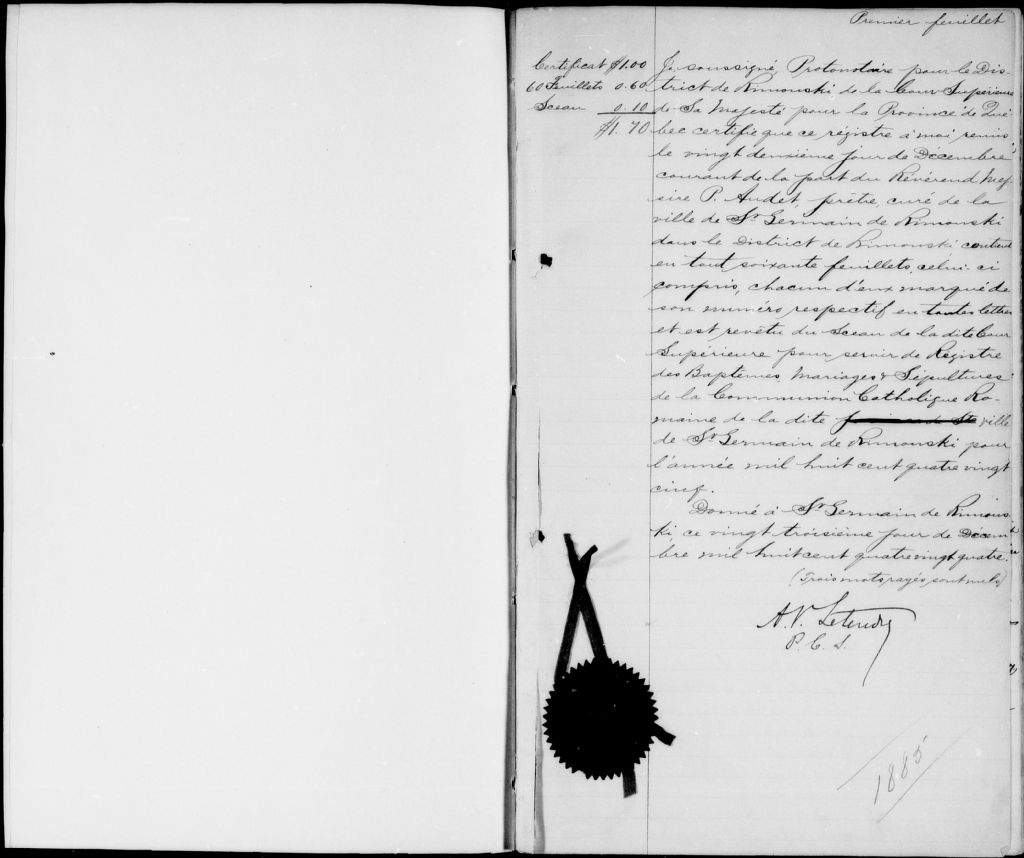 Premier feuillet
Certificat $1.00
60 Feuillets 0.60
Sceau 0.10
$1.70
Je, soussigné, Protonotaire pour le Dis-
trict de Rimouski de la Cour Supérieure
de Sa Majesté pour la Province de Qué-
bec certifie que ce régistre à moi remis
le vingt deuxième jour de Décembre
courant de la part du Révérend Mes-
sire P. Audet, prêtre, curé de la
ville de St Germain de Rimouski
dans le District de Rimouski contient
en tout soixante feuillets, celui-ci
compris, chacun d'eux marqué de
son numéro respectif en toutes lettres
et est revêtu du Sceau de la dite Cour
Supérieure pour servir de Régistre
des Baptêmes, Mariages & Sépultures
de la Communion Catholique Ro-
maine de la dite ville
de St Germain de Rimouski pour
l'année mil huit cent quatre vingt
cinq.
Donné à St Germain de Rimous-
ki, ce vingt troisième jour de Décem-
bre mil huit cent quatre vingt quatre.
(Trois mots rayés sont nuls)
A. V. Letendre
P. C. S.
1885